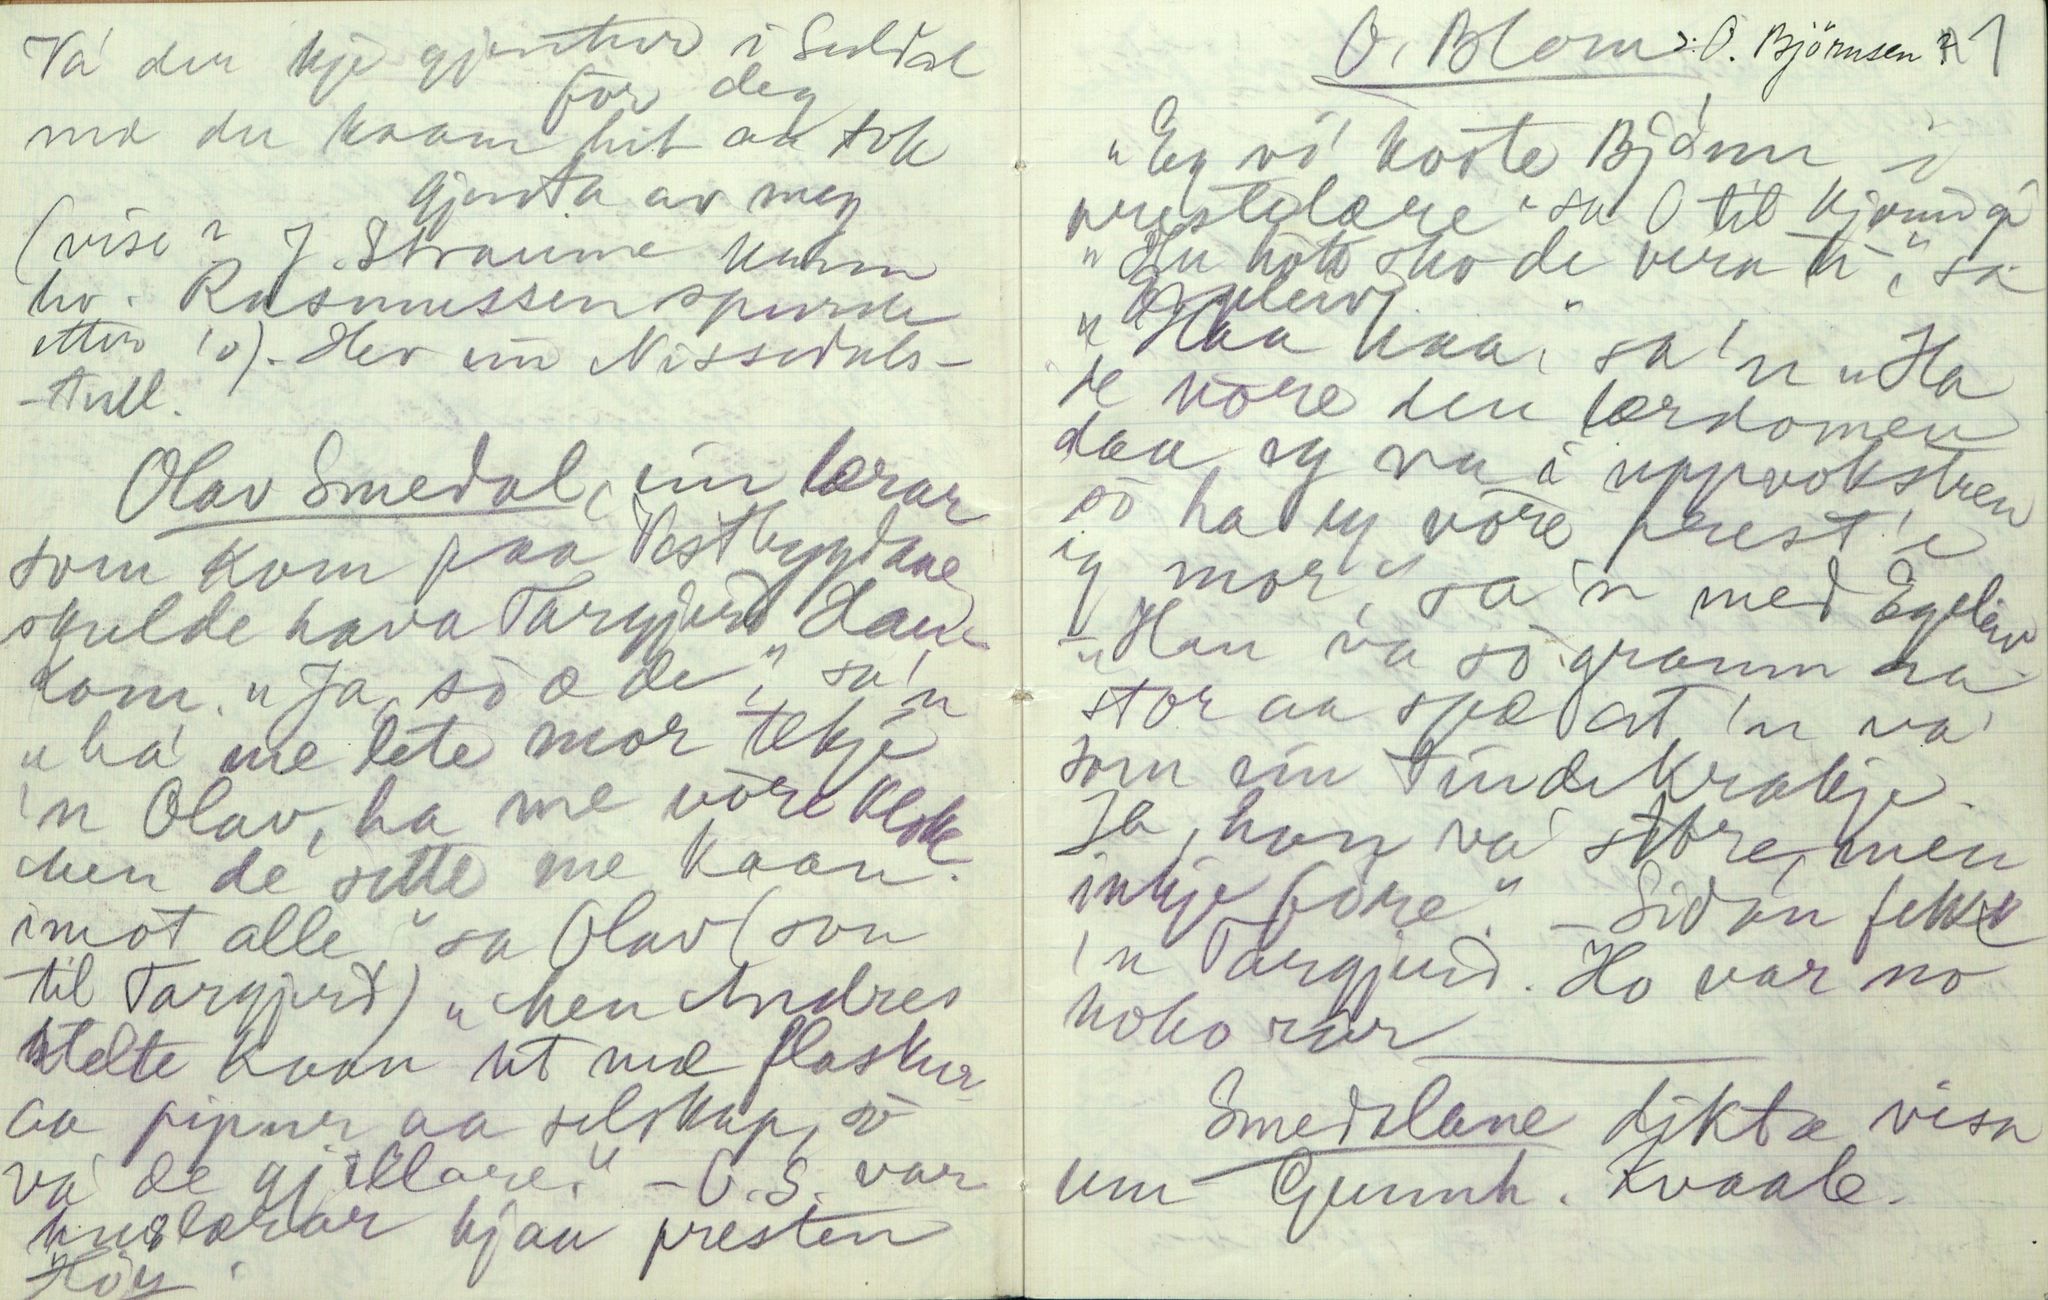 Va' der kje gjentur i Suldal
for deg
mæ du kaam hit aa tok
gjenta av meg
(vise? J. Straume kunn
ho. Rasmussen spurde
etter 'o). Hev ein Nissedals-
-tull.
Olav Smedal, ein lærar
som kom paa Vestbygdane
skulde hava Targjerd. Han
kom. "Ja, sò æ de", sa 'n
"ha' me lete mor tekje
'n Olav, ha me vòre klokk
Men de sette me kaan.
imot alle" sa Olav (son
til Targjerd) "Men Andres
stelte kaan ut mæ flaskur
aa pipur aa selskap, sò
va' de gjillare." - O. S. var
huslærar hjaa presten
Höy.
O. Blom ɔ: O. Björnsen 1
"Eg vi' koste Bjönn i
prestelære" sa O til kjeringi
"Hu hott sko de vera ti", sa
Egeleiv
"Haa haa" sa 'n "Ha
de vòre den lærdomen
daa eg va i uppvokstren
sò ha eg vòre prest 'e
ig mor", sa 'n med Egeleiv
- "Han va sò gramm aa
stor aa spæ at 'n va'
som ein Tindekrakje.
Ja, han va' store, men
inkje före." - Sidan fekk
'n Targjerd. Ho var no
noko rar
Smedalane dikta visa
um Gunnh. Kvaale.